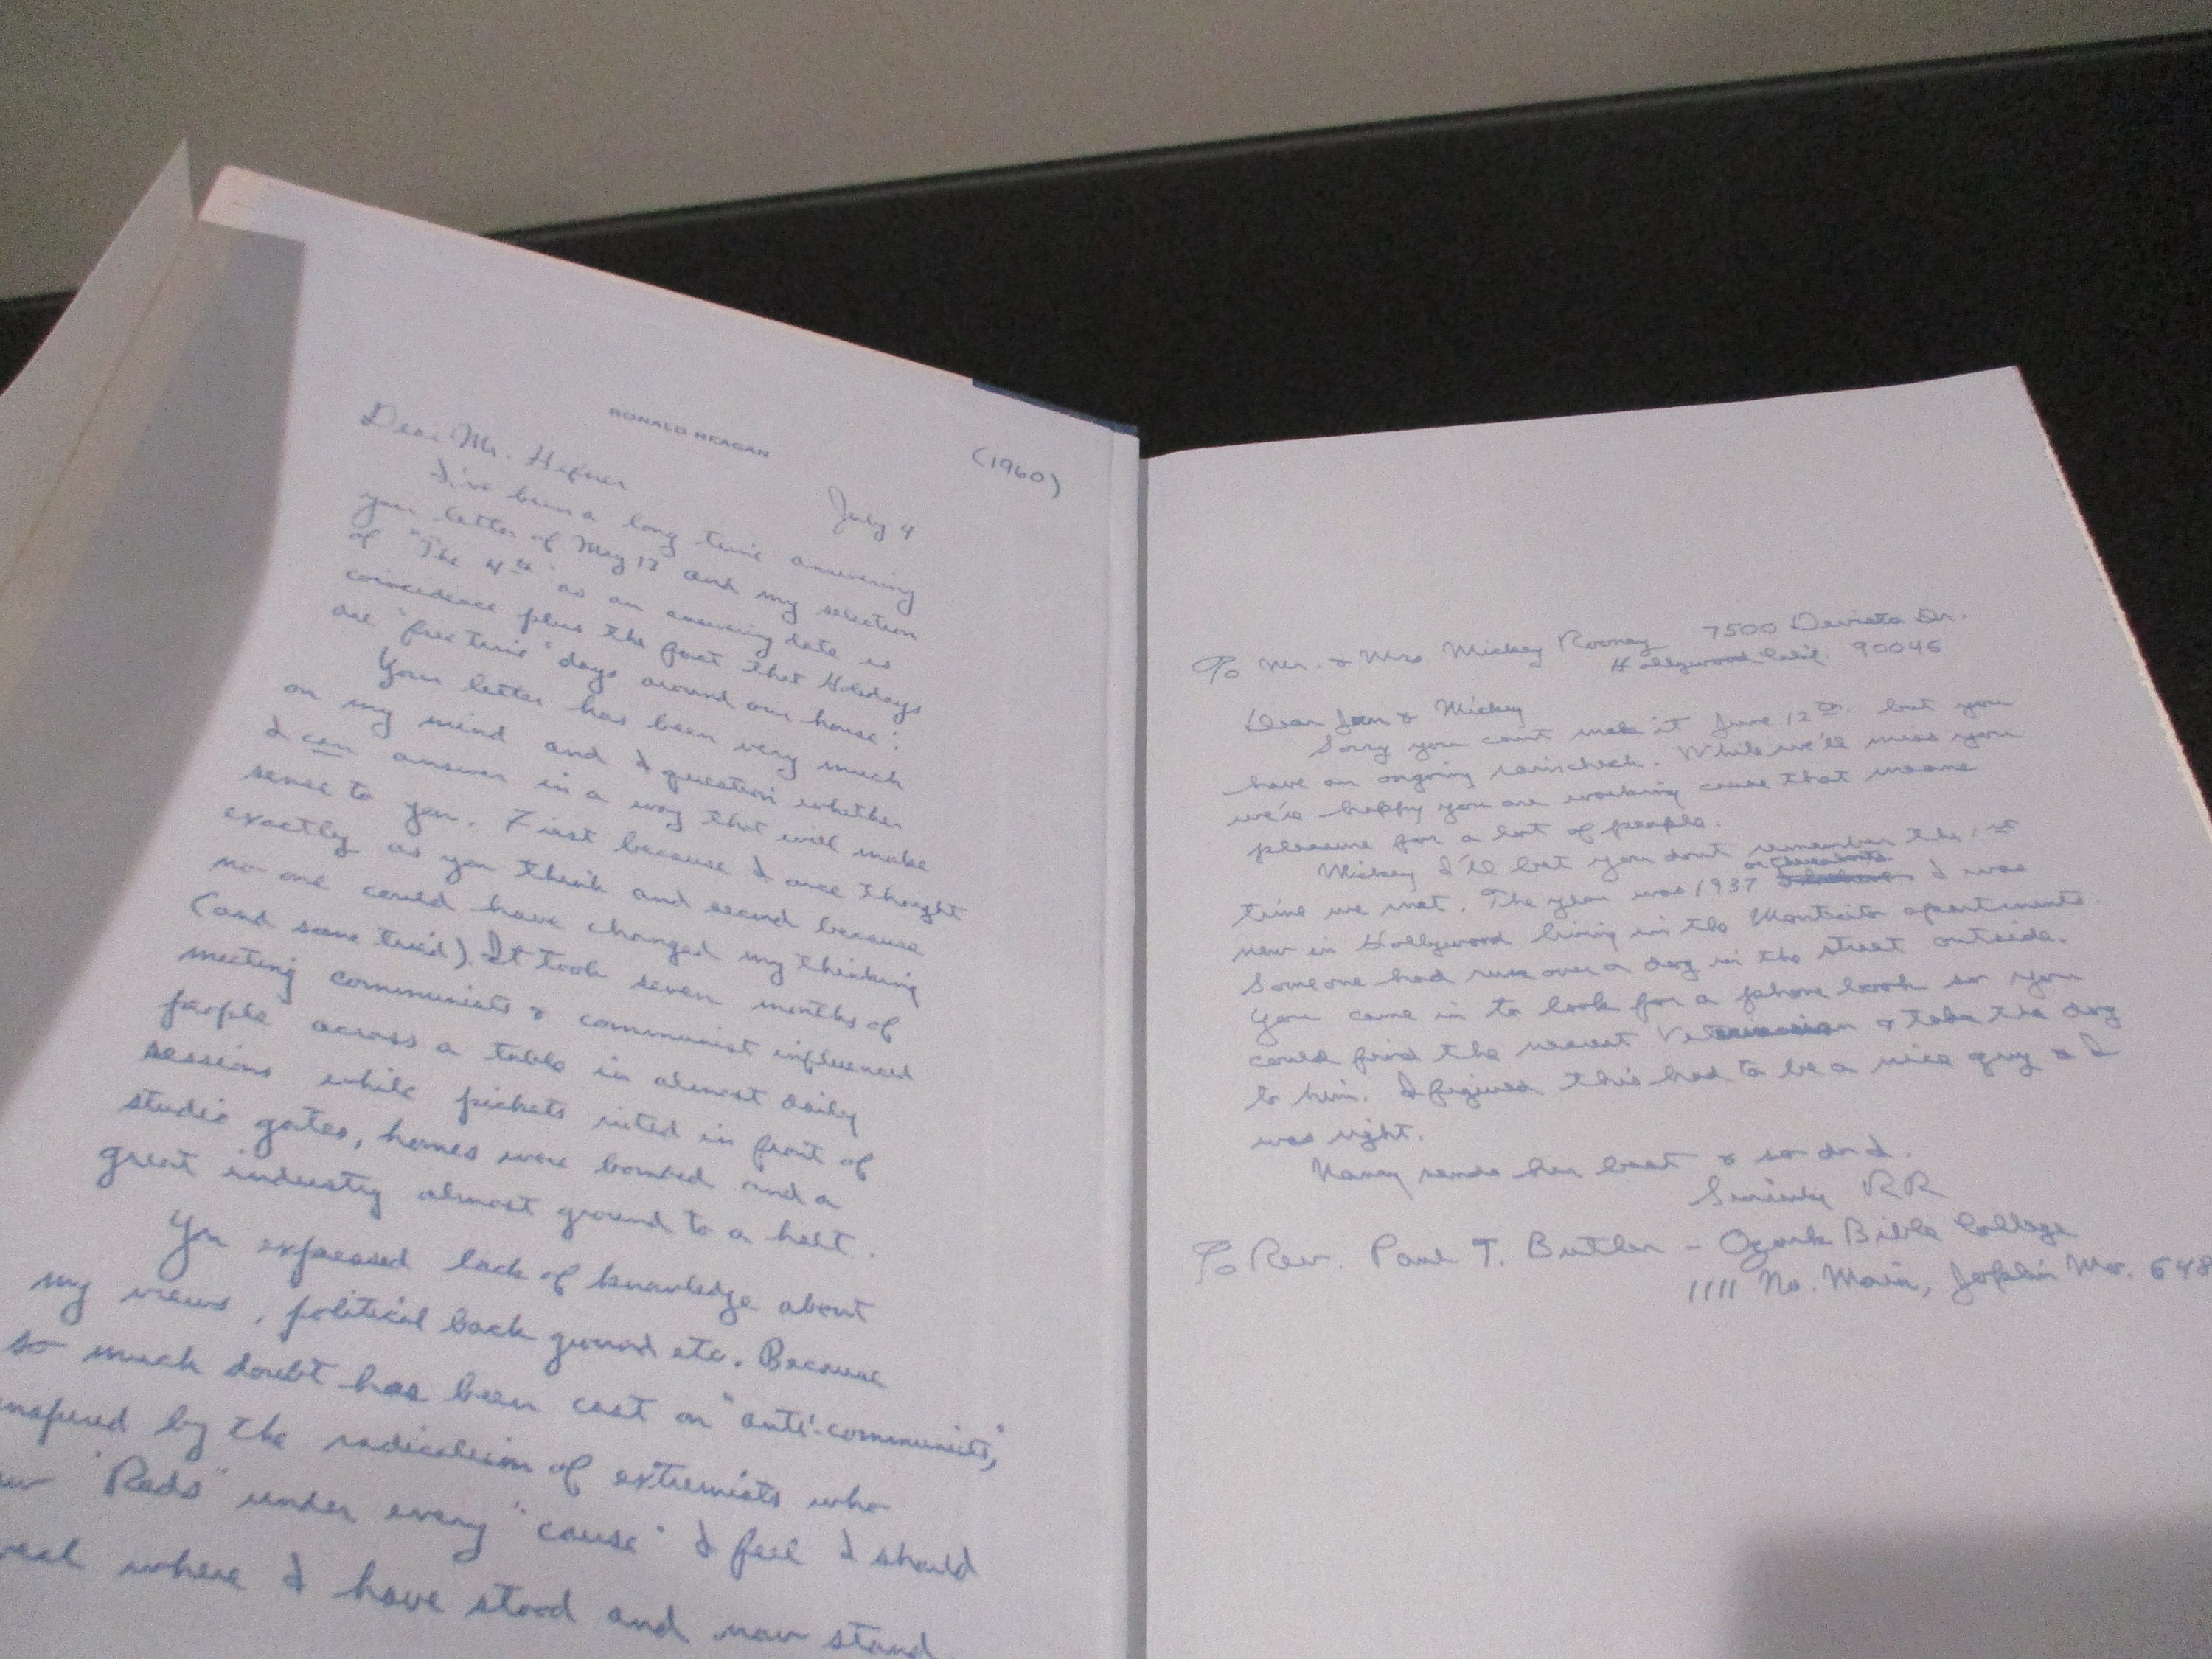 RONALD REAGAN
(1960)
July 4
Dear Mr. Hefner
I've been a long time answering
your letter of May 13 and my selection
of "The 4th" as an answering date is
coincidence plus the fact that Holidays
are "free time" days around our house.
Your letter has been very much
on my mind and I question whether
I can answer in a way that will make
sense to you. First because I once thought
exactly as you think and second because
no one could have changed my thinking
(and some tried). It took seven months of
meeting communists & communist influenced
people across a table in almost daily
sessions while pickets rioted in front of
studio gates, homes were bombed and a
great industry almost ground to a halt.
You expressed lack of knowledge about
my views, political back ground etc. Because
so much doubt has been cast on "anti-communists,"
inspired by the radicalism of extremists who
saw "Reds" under every "cause" I feel I should
where I have stood and now stand
To Mr. & Mrs. Mickey Rooney 7500 Devista Dr.
Hollywood Calif. 90046
Dear Jan & Mickey
Sorry you cant make it June 12th but you
have an ongoing raincheck. While we'll miss you
we're happy you are working cause that means
pleasure for a lot of people.
Mickey I'll bet you dont remember the 1st
time we met. The year was 1937 I was
new in Hollywood living in the Montecito apartments.
Someone had run over a dog in the street outside.
You came in to look for a phone book so you
could find the nearest & take the dog
to him. I figured this had to be a nice guy & I
was right.
Nancy sends her best & so do I.
Sincerely RR
To Rev. Paul T. Butler - Ozark Bible College
1111 No. Main, Joplin Mo. 648